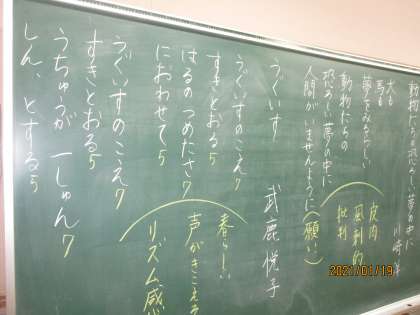 動物たちの恐ろしい夢の中に
川崎洋
犬も
馬も
夢をみるらしい
動物たちの
恐ろしい夢の中に
人間がいませんように(願い)
皮肉
風刺的
批判
うぐいす
武鹿悦子
うぐいすのこえ7
すきとおる5
はるのつめたさ7
におわせて5
春らしい
声がきこえる
リズム感
うぐいすのこえ7
すきとおる5
うちゅうが一しゅん7
しん、とする5
2021/01/19